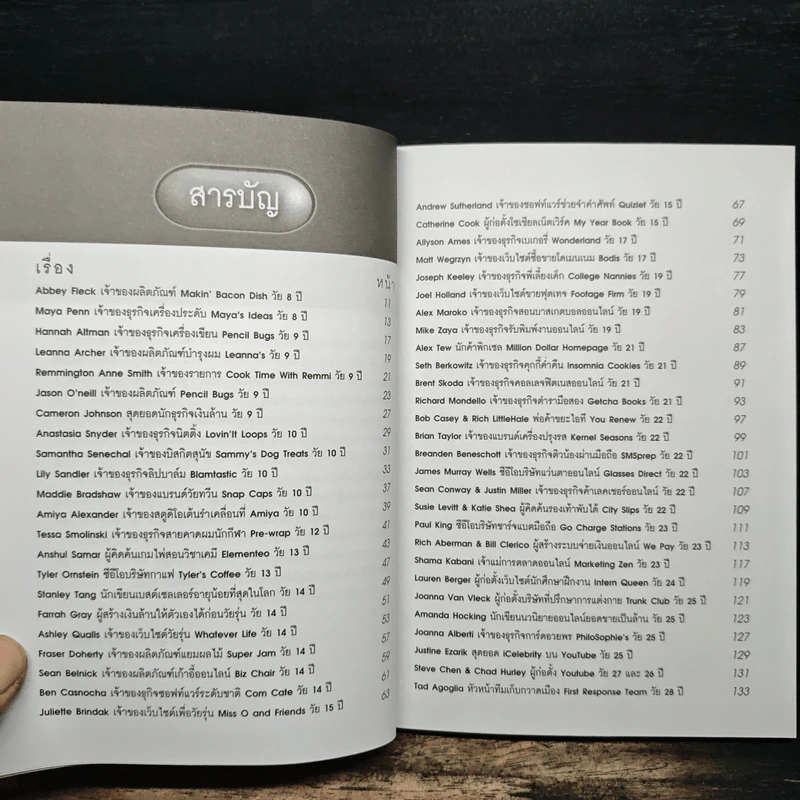 สารบัญ
เรื่อง หน้า
Abbey Fleck เจ้าของผลิตภัณฑ์ Makin' Bacon Dish วัย 8 ปี 11
Maya Penn เจ้าของธุรกิจเครื่องประดับ Maya's Ideas วัย 8 ปี 13
Hannah Altman เจ้าของธุรกิจเครื่องเขียน Pencil Bugs วัย 9 ปี 17
Leanna Archer เจ้าของผลิตภัณฑ์บำรุงผม Leanna's วัย 9 ปี 19
Remmington Anne Smith เจ้าของรายการ Cook Time With Remmi วัย 9 ปี 21
Jason O'neill เจ้าของผลิตภัณฑ์ Pencil Bugs วัย 9 ปี 23
Cameron Johnson สุดยอดนักธุรกิจเงินล้าน วัย 9 ปี 27
Anastasia Snyder เจ้าของธุรกิจนิตติ้ง Lovin'It Loops วัย 10 ปี 29
Samantha Senechal เจ้าของบิสกิตสุนัข Sammy's Dog Treats วัย 10 ปี 31
Lily Sandler เจ้าของธุรกิจลิปบาล์ม Blamtastic วัย 10 ปี 33
Maddie Bradshaw เจ้าของแบรนด์วัยทวีน Snap Caps วัย 10 ปี 37
Amiya Alexander เจ้าของสตูดิโอเต้นรำเคลื่อนที่ Amiya วัย 10 ปี 39
Tessa Smolinski เจ้าของธุรกิจสายคาดผมนักกีฬา Pre-wrap วัย 12 ปี 41
Anshul Samar ผู้คิดค้นเกมไพ่สอนวิชาเคมี Elementeo วัย 13 ปี 43
Tyler Ornstein ซีอีโอบริษัทกาแฟ Tyler's Coffee วัย 13 ปี 47
Stanley Tang นักเขียนเบสต์เซลเลอร์อายุน้อยที่สุดในโลก วัย 14 ปี 49
Farrah Gray ผู้สร้างเงินล้านให้ตัวเองได้ก่อนวัยรุ่น วัย 14 ปี 51
Ashley Qualls เจ้าของเว็บไซต์วัยรุ่น Whatever Life วัย 14 ปี 53
Fraser Doherty เจ้าของผลิตภัณฑ์แยมผลไม้ Super Jam วัย 14 ปี 57
Sean Belnick เจ้าของผลิตภัณฑ์เก้าอี้ออนไลน์ Biz Chair วัย 14 ปี 59
Ben Casnocha เจ้าของธุกิจซอฟท์แวร์ระดับชาติ Com Cate วัย 14 ปี 61
Juliette Brindak เจ้าของเว็บไซต์เพื่อวัยรุ่น Miss O and Friends วัย 15 ปี 63
Andrew Sutherland เจ้าของซอฟท์แวร์ช่วยจำคำศัพท์ Quizlet วัย 15 ปี 67
Catherine Cook ผู้ก่อตั้งโซเชียลเน็ตเวิร์ค My Year Book วัย 15 ปี 69
Allyson Ames เจ้าของธุรกิจเบเกอรี่ Wonderland วัย 17 ปี 71
Matt Wegrzyn เจ้าของเว็บไซต์ซื้อขายโดเมนเนม Bodis วัย 17 ปี 73
Joseph Keeley เจ้าของธุรกิจพี่เลี้ยงเด็ก College Nannies วัย 19 ปี 77
Joel Holland เจ้าของเว็บไซต์ขายฟุตเทจ Footage Firm วัย 19 ปี 79
Alex Maroko เจ้าของธุรกิจสอนบาสเกตบอลออนไลน์ วัย 19 ปี 81
Mike Zaya เจ้าของธุรกิจรับพิมพ์งานออนไลน์ วัย 19 ปี 83
Alex Tew นักค้าพิกเซล Million Dollar Homepage วัย 21 ปี 87
Seth Berkowitz เจ้าของธุรกิจคุกกี้ค่ำคืน Insomnia Cookies วัย 21 ปี 89
Brent Skoda เจ้าของธุรกิจคอลเลจฟิตเนสออนไลน์ วัย 21 ปี 91
Richard Mondello เจ้าของธุรกิจตำรามือสอง Getcha Books วัย 21 ปี 93
Bob Casey & Rich LittleHale พ่อค้าขยะไอที You Renew วัย 22 ปี 97
Brian Taylor เจ้าของแบรนด์เครื่องปรุงรส Kernel Seasons วัย 22 ปี 99
Breanden Beneschott เจ้าของธุรกิจติวน้องผ่านมือถือ SMSprep วัย 22 ปี 101
James Murray Wells ซีอีโอบริษัทแว่นตาออนไลน์ Glasses Direct วัย 22 ปี 103
Sean Conway & Justin Miller เจ้าของธุรกิจค้าเลคเชอร์ออนไลน์ วัย 22 ปี 107
Susie Levitt & Katie Shea ผู้คิดค้นรองเท้าพับได้ City Slips วัย 22 ปี 109
Paul King ซีอีโอบริษัทชาร์จแบตมือถือ Go Charge Stations วัย 23 ปี 111
Rich Aberman & Bill Clerico ผู้สร้างระบบจ่ายเงินออนไลน์ We Pay วัย 23 ปี 113
Shama Kabani เจ้าแม่การตลาดออนไลน์ Marketing Zen วัย 23 ปี 117
Lauren Berger ผู้ก่อตั้งเว็บไซต์นักศึกษาฝึกงาน Intern Queen วัย 24 ปี 119
Joanna Van Vleck ผู้ก่อตั้งบริษัทที่ปรึกษาการแต่งกาย Trunk Club วัย 25 ปี 121
Amanda Hocking นักเขียนนวนิยายออนไลน์ยอดขายเป็นล้าน วัย 25 ปี 123
Joanna Alberti เจ้าของธุรกิจการ์ดอวยพร PhiloSophie's วัย 25 ปี 127
Justine Ezarik สุดยอด iCelebrity บน YouTube วัย 25 ปี 129
Steve Chen & Chad Hurley ผู้ก่อตั้ง Youtube วัย 27 และ 26 ปี 131
Tad Agoglia หัวหน้าทีมเก็บกวาดเมือง First Response Team วัย 28 ปี 133